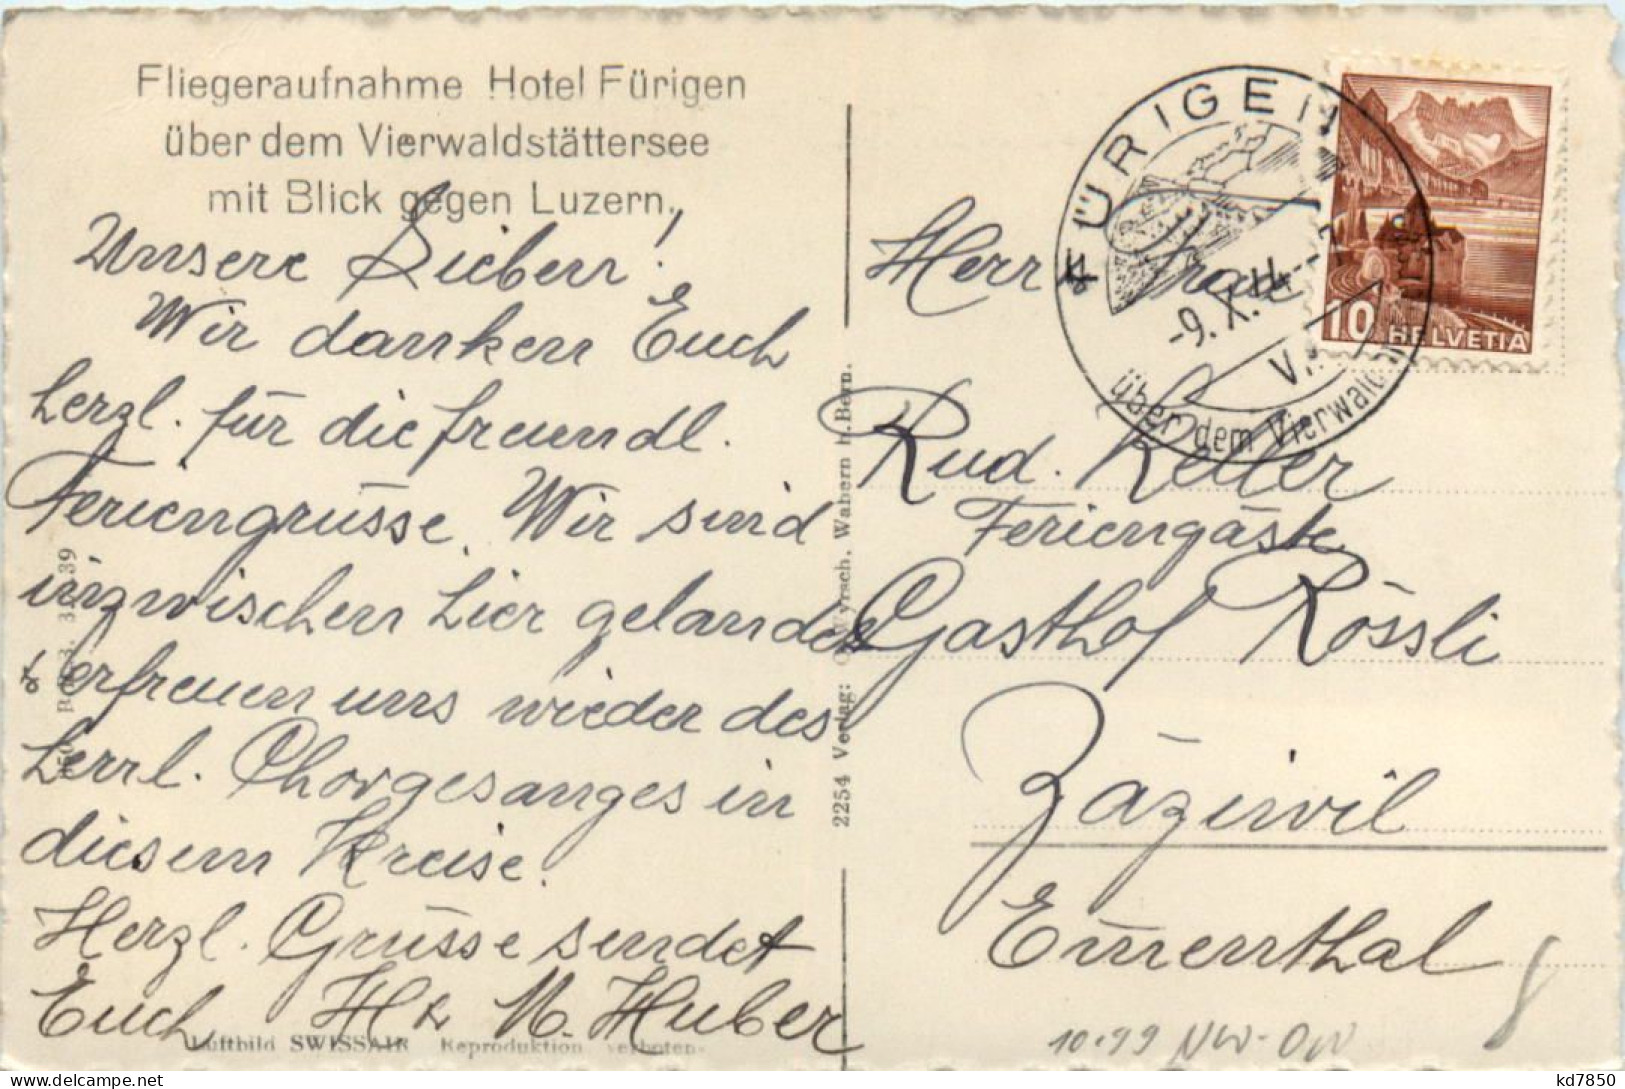 Fliegeraufnahme Hotel Fürigen
über dem Vierwaldstättersee
mit Blick gegen Luzern.
Unsere Lieben!
Wir danken Euch
herzl. für die freundl.
Feriengrüsse. Wir sind
inzwischen hier gelandet
& erfreuen uns wieder des
herrl. Chorgesanges in
diesem Kreise.
Herzl. Grüsse sendet
Euch H & M. Huber
Luftbild SWISSAIR Reproduktion verboten
39
2254 Verlag: Wyrsch, Wabern b. Bern.
FÜRIGEN
-9. X. 44
über dem Vierwald
10 HELVETIA
Herr & Frau
Rud. Keller
Feriengäste
Gasthof Rössli
Zäziwil
Emmenthal
10.99 NW-OW
kd7850